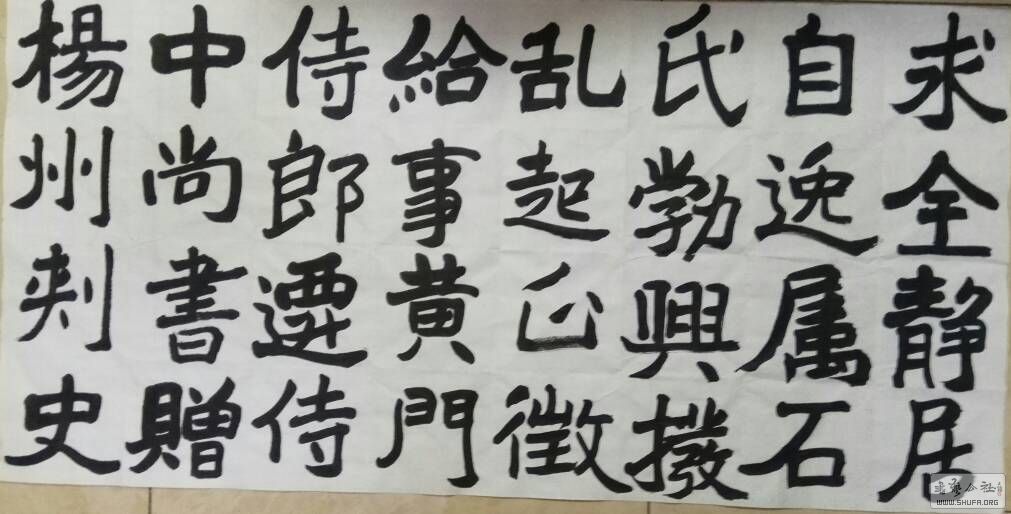 求全静居
自逸属石
氏勃興撥
乱起正徵
給事黄門
侍郎遷侍
中尚書贈
楊州刾史
公社
WWW.SHUFA.ORG